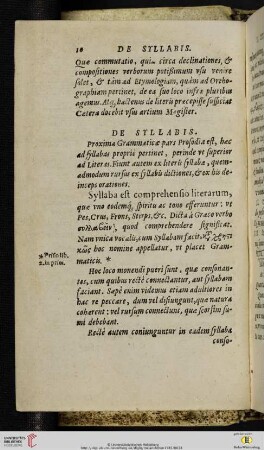 10 DE SYLLABIS.
Que commutatio, quia circa declinationes, &
compositiones verborum potissimum usu venire
solet, & tàm ad Etymologiam, quàm ad Ortho-
graphiam pertinet, de ea suo loco infra pluribus
agemus. Atq; hactenus de literis præcepisse sufficiat
Cætera docebit usu artium Magister.
DE SYLLABIS.
Proxima Grammaticæ pars Prosodia est, hæc
ad syllabas propriè pertinet, perinde ut superior
ad Literas. Fiunt autem ex literis syllabæ, quem-
admodum rursus ex syllabis dictiones, & ex his de-
inceps orationes.
Syllaba est comprehensio literarum,
quæ uno eodemq; spiritu ac tono efferuntur: ut
Pes, Crus, Frons, Stirps, &c. Dicta à Græco verbo
quod comprehendere significat.
Nam unica vocalis, cum Syllabam facit,
hoc nomine appellatur, ut placet Gram-
maticis. *
* Prisc. lib.
2. in prim.
Hoc loco monendi pueri sunt, quæ consonan-
tes, cum quibus rectè connectantur, aut syllabam
faciant. Sæpè enim videmus etiam adultiores in
hac re peccare, dum vel disiungunt, quæ natura
cohærent: vel rursum connectunt, quæ seorsim su-
mi debebant.
Rectè autem coniunguntur in eadem syllaba
conso-
© Universitätsbibliothek Heidelberg